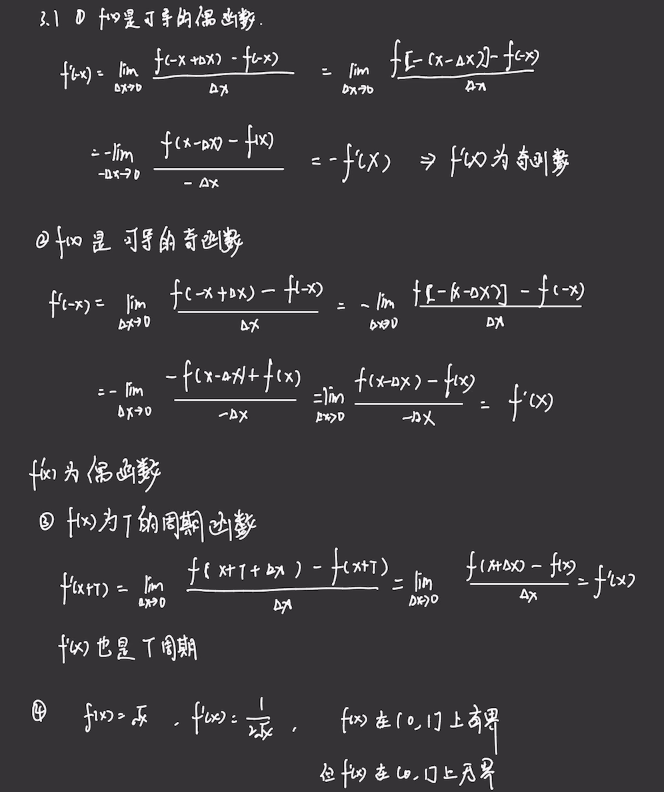 3.1 ① f(x)是可导的偶函数.
f'(-x) = lim_{Δx→0} \frac{f(-x+Δx) - f(-x)}{Δx} = lim_{Δx→0} \frac{f[-(x-Δx)] - f(-x)}{Δx}
= -lim_{-Δx→0} \frac{f(x-Δx) - f(x)}{-Δx} = -f'(x) ⇒ f'(x)为奇函数
② f(x)是 可导的奇函数
f'(-x) = lim_{Δx→0} \frac{f(-x+Δx) - f(-x)}{Δx} = -lim_{Δx→0} \frac{f[-(x-Δx)] - f(-x)}{Δx}
= -lim_{Δx→0} \frac{-f(x-Δx) + f(x)}{-Δx} = lim_{Δx→0} \frac{f(x-Δx) - f(x)}{-Δx} = f'(x)
f'(x)为偶函数
③ f(x)为T的周期函数
f'(x+T) = lim_{Δx→0} \frac{f(x+T+Δx) - f(x+T)}{Δx} = lim_{Δx→0} \frac{f(x+Δx) - f(x)}{Δx} = f'(x)
f'(x)也是T周期
④ f(x) = √x , f'(x) = \frac{1}{2√x} , f(x)在(0,1]上有界
但f'(x)在(0,1]上无界